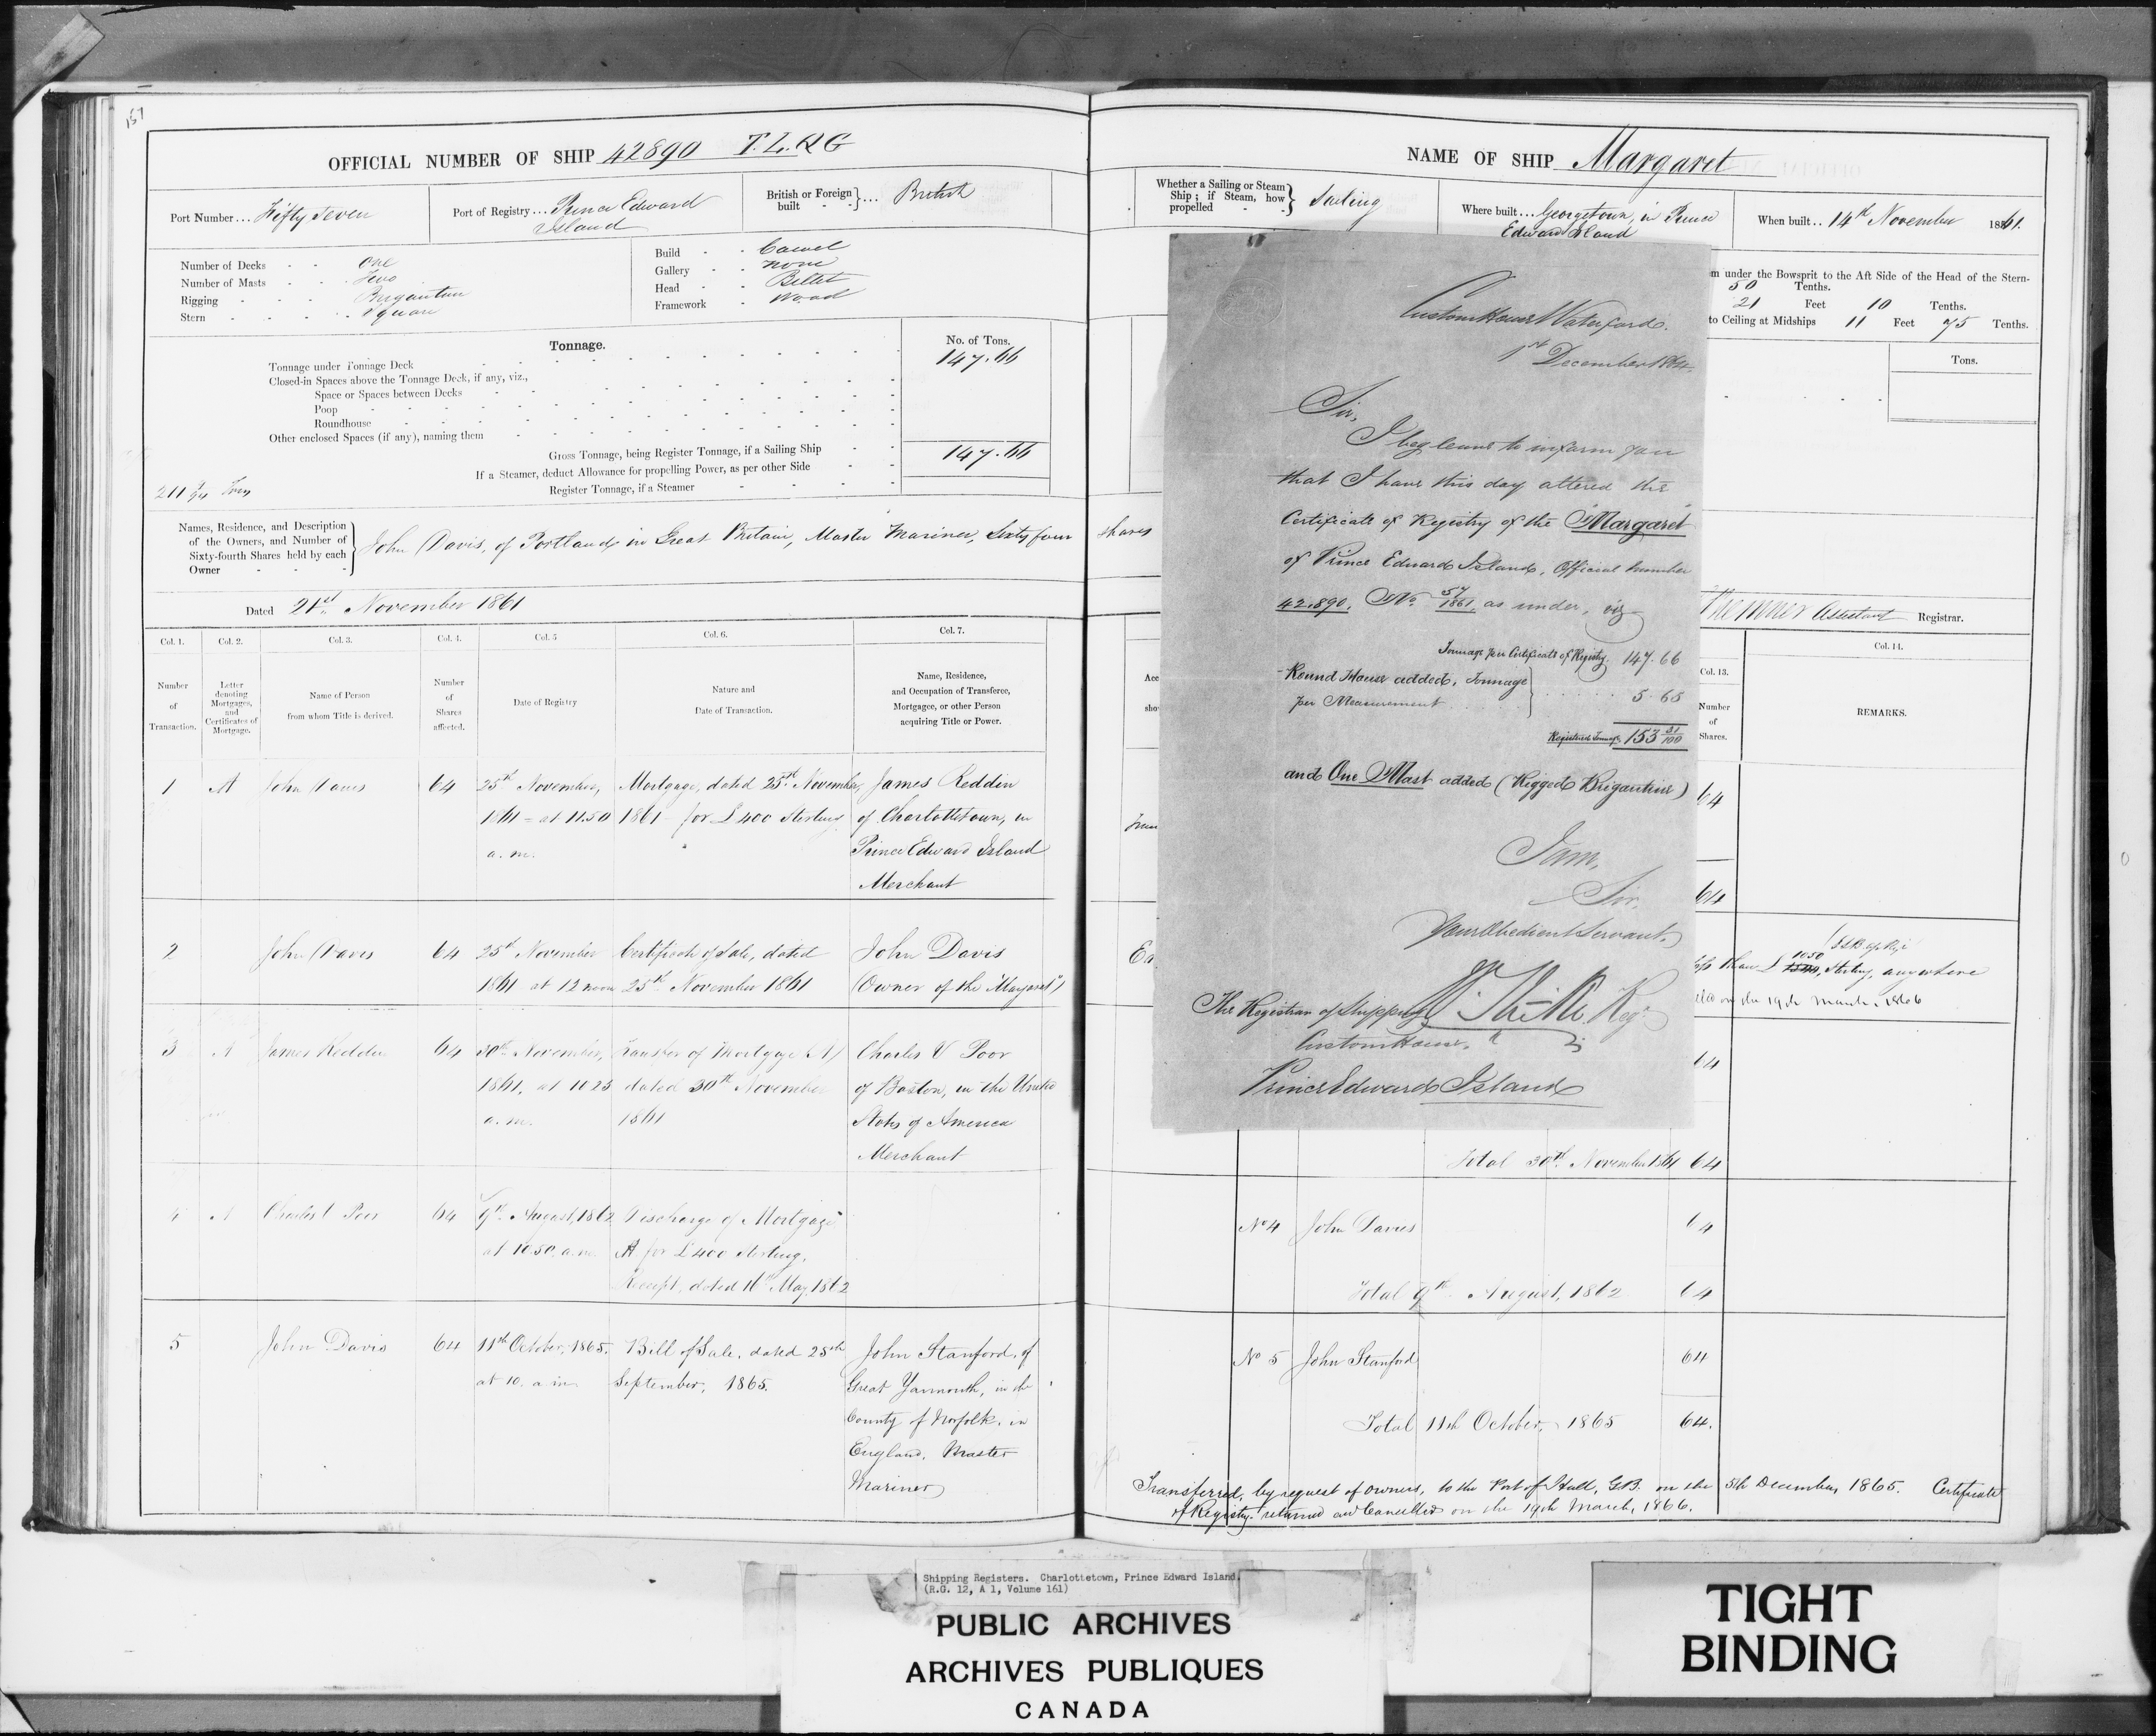 157
OFFICIAL NUMBER OF SHIP 42890 T.L.Q.G
Port Number... Fifty Seven
Port of Registry... Prince Edward
Island
British or Foreign built ... British
Number of Decks - - One
Number of Masts - - Two
Rigging - - - Brigantine
Stern - - - Square
Build - - Carvel
Gallery - - None
Head - - Billet
Framework - Wood
Tonnage.
No. of Tons.
Tonnage under Tonnage Deck 147.66
Closed-in Spaces above the Tonnage Deck, if any, viz.,
Space or Spaces between Decks
Poop
Roundhouse
Other enclosed Spaces (if any), naming them
Gross Tonnage, being Register Tonnage, if a Sailing Ship 147.66
If a Steamer, deduct Allowance for propelling Power, as per other Side
Register Tonnage, if a Steamer
Tons
Names, Residence, and Description
of the Owners, and Number of
Sixty-fourth Shares held by each
Owner
John Davis, of Portland, in Great Britain, Master Mariner, Sixty four shares
Dated 21st November 1861
Col. 1. Col. 2. Col. 3. Col. 4. Col. 5 Col. 6. Col. 7.
Number of Transaction.
Letter denoting Mortgages, and Certificates of Mortgage.
Name of Person from whom Title is derived.
Number of Shares affected.
Date of Registry
Nature and Date of Transaction.
Name, Residence, and Occupation of Transferee, Mortgagee, or other Person acquiring Title or Power.
1 A John Davis 64 25th November, Mortgage, dated 25th November, James Reddin
1861 - at 11.50 1861 - for £400 Sterling of Charlottetown, in
a.m. Prince Edward Island
Merchant
2 John Davis 64 25th November Certificate of Sale, dated John Davis
1861 at 12 noon 25th November 1861 (Owner of the "Margaret")
3 A James Reddin 64 30th November, Transfer of Mortgage (A) Charles V Poor
1861, at 10.25 dated 30th November of Boston, in the United
a.m. 1861 States of America
Merchant
4 A Charles V Poor 64 9th August, 1862 Discharge of Mortgage
at 10.50. a.m. A for £400 Sterling.
Receipt, dated 16th May, 1862
5 John Davis 64 11th October, 1865. Bill of Sale, dated 25th John Stanford, of
at 10. a.m. September, 1865. Great Yarmouth, in the
County of Norfolk, in
England, Master
Mariner
NAME OF SHIP Margaret
Whether a Sailing or Steam Ship; if Steam, how propelled Sailing
Where built... Georgetown, in Prince
Edward Island
When built.. 14th November 1861.
m under the Bowsprit to the Aft Side of the Head of the Stern-
50 Tenths.
21 Feet 10 Tenths.
to Ceiling at Midships 11 Feet 75 Tenths.
Tons.
Custom House Waterford.
1st December 1864
Sir,
I beg leave to inform you
that I have this day altered the
Certificate of Registry of the Margaret
of Prince Edward Island, Official Number
42,890. No. 57/1861, as under, viz
Tonnage per Certificate of Registry. 147.66
Round House added, Tonnage
per Measurement 5.65
Registered Tonnage 153 31/100
and One Mast added (Rigged Brigantine)
I am,
Sir,
Your Obedient Servant,
Regr
The Registrar of Shipping
Custom House,
Prince Edward Island
Assistant Registrar.
Col. 13. Col. 14.
Number of Shares.
REMARKS.
64
64
than £ 1050 Sterling, anywhere
on the 19th March, 1866
64
Total 30th November 1861 64
No 4 John Davies 64
Total 9th August, 1862 64
No 5 John Stanford 64
Total 11th October, 1865 64.
Transferred, by request of owners, to the Port of Hull, G.B. on the 5th December, 1865. Certificate
of Registry returned and Cancelled on the 19th March, 1866.
Shipping Registers. Charlottetown, Prince Edward Island.
(R.G. 12, A 1, Volume 161)
PUBLIC ARCHIVES
ARCHIVES PUBLIQUES
CANADA
TIGHT
BINDING